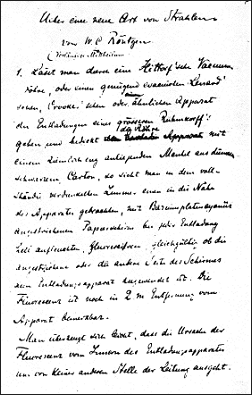 Ueber eine neue Art von Strahlen
von W. C. Röntgen
(Vorläufige Mittheilung)
1. Lässt man durch eine Hittorf'sche Vacuum-
röhre, oder einen genügend evacuirten Lenard'
schen, Crookes'schen oder ähnlichen Apparat
die Entladungen eines grösseren Ruhmkorff's
gehen und bedeckt die Röhre Apparat mit
einem ziemlich eng anliegenden Mantel aus dünnem
schwarzem Carton, so sieht man in dem voll-
ständig verdunkelten Zimmer einen in die Nähe
des Apparates gebrachten, mit Bariumplatincyanür
angestrichenen Papierschirm bei jeder Entladung
hell aufleuchten, fluoresciren, gleichgültig ob die
angestrichene oder die andere Seite des Schirmes
dem Entladungsapparat zugewendet ist. Die
Fluorescenz ist noch in 2 m Entfernung vom
Apparat bemerkbar.
Man überzeugt sich leicht, dass die Ursache der
Fluorescenz vom Innern des Entladungsapparates
und von keiner anderen Stelle der Leitung ausgeht.